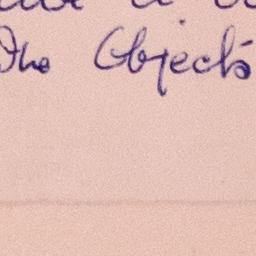 The Objects